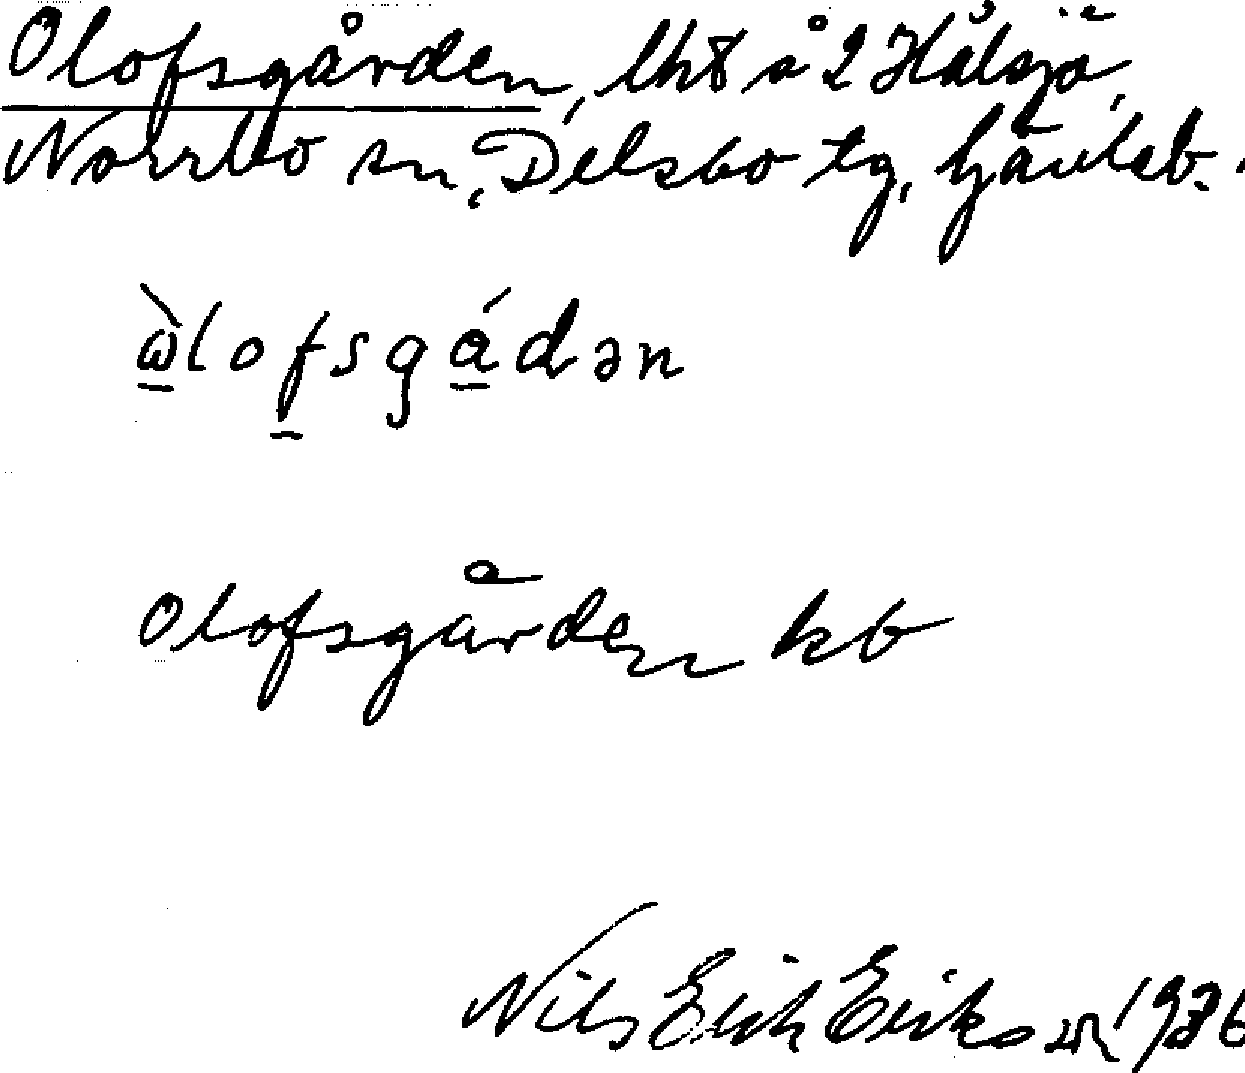 Olofsgården, lht å 2 Hålsjö,
Norrbo sn, Delsbo tg, Gävleb.
ὼlofsgádən
Olofsgården kb
Nils Erik Erikson 1936